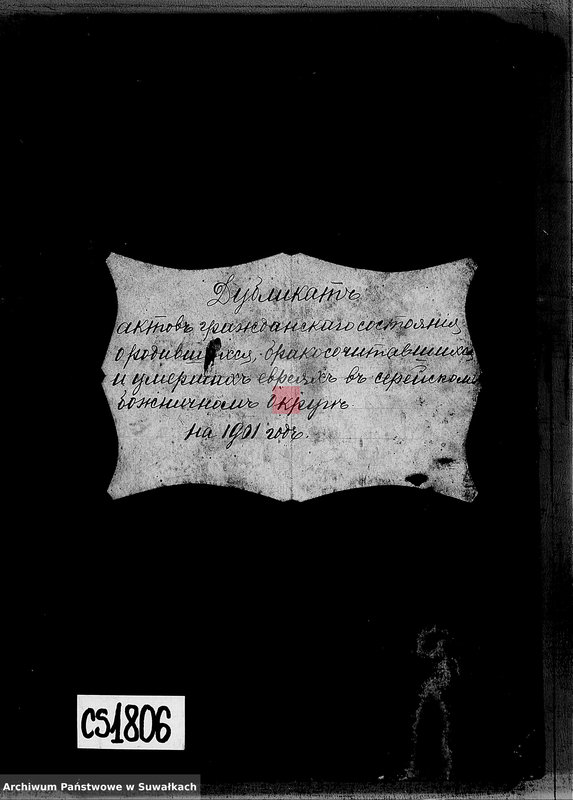 Дубликатъ
актовъ гражданскаго состоянія
о родившихся, бракосочитавшихся
и умершихъ евреяхъ въ серейскомъ
божничномъ округѣ
на 1901 годъ.
CS1806
Archiwum Państwowe w Suwałkach